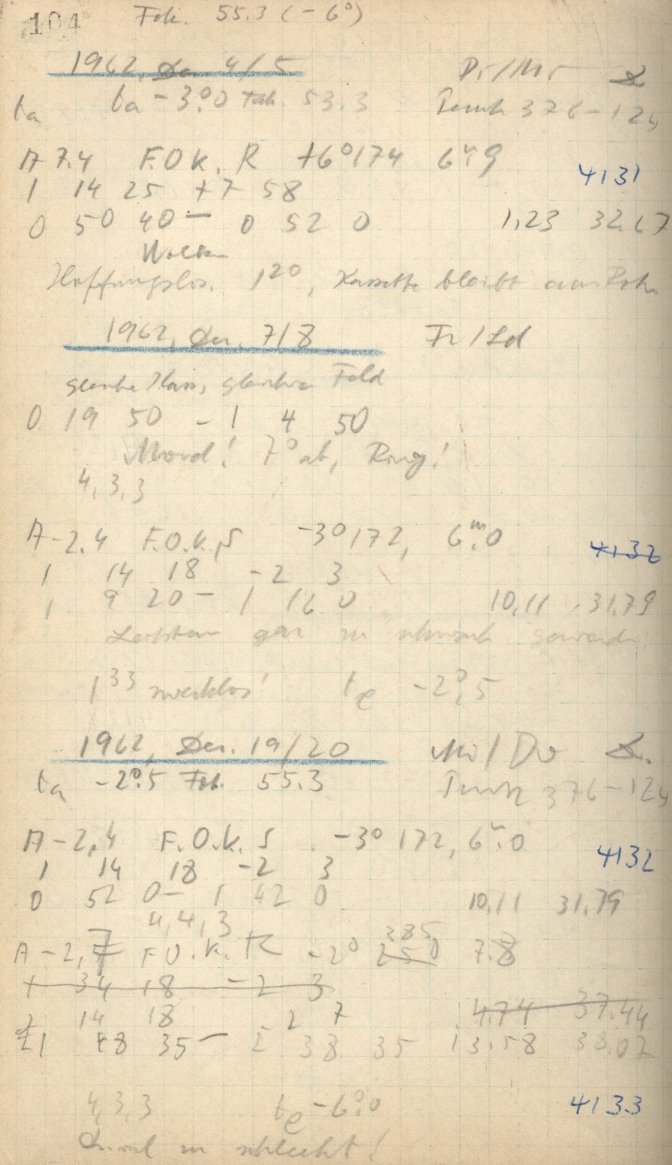 104 Fok. 55.3 (-6°)
1962, Dez. 4/5 Di/Mi
ta ta -3°.0 Fok. 53.3 376-124
A 7.4 F.O.K. R +6°174 6m.9
4131
1 14 25 +7 58
0 50 40 - 0 52 0 1,23 32.17
Wolken
Hoffnungslos. 1 20, Kassette bleibt am Rohr
1962, Dez. 7/8 Fr/Sa
gleiche Platte, gleiches Feld
0 19 50 - 1 4 50
Mond! 7° ab, Ring!
4,3,3
A-2.4 F.O.K. S -3°172, 6m.0
4132
1 14 18 -2 3
1 9 20 - 1 16 0 10,11 31.79
gar zu schwach geworden
1 33 zwecklos! te -2°,5
1962, Dez. 19/20 Mi/Do
ta -2°.5 Fok. 55.3 376-124
A-2,4 F.O.K. S -3°172, 6m.0
4132
1 14 18 -2 3
0 52 0 - 1 42 0 10,11 31.79
4,4,3
385
A-2,7 F.O.K. R -2° 250 7.8
1 34 18 -2 3
1 14 18 2 7 4.74 37.44
1 48 35 - 2 38 35 13.58 38.02
4,3,3 te -6°.0 4133
zu schlecht!